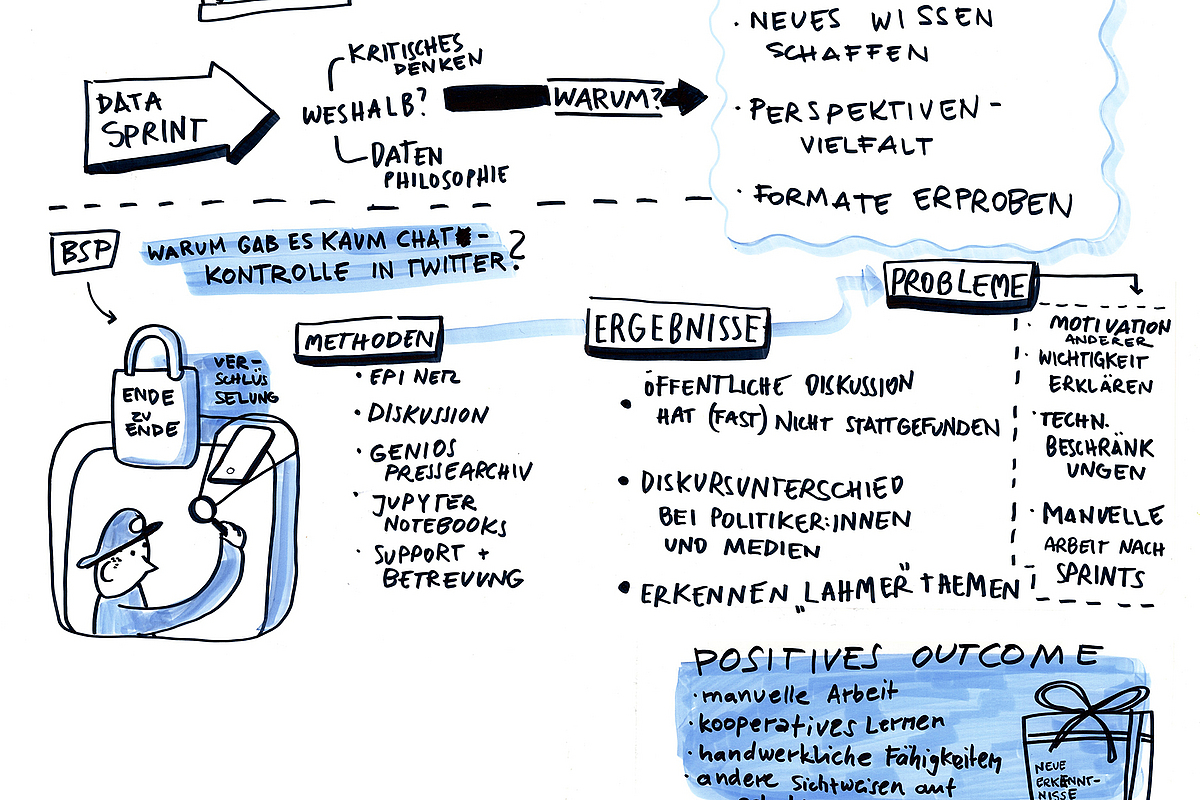 DATA
SPRINT
KRITISCHES
DENKEN
WESHALB?
DATEN
PHILOSOPHIE
WARUM?
· NEUES WISSEN
SCHAFFEN
· PERSPEKTIVEN-
VIELFALT
· FORMATE ERPROBEN
BSP
WARUM GAB ES KAUM CHAT-
KONTROLLE IN TWITTER?
ENDE
ZU
ENDE
VER-
SCHLÜS
SELUNG
METHODEN
· EPINETZ
· DISKUSSION
· GENIOS
PRESSEARCHIV
· JUPYTER
NOTEBOOKS
· SUPPORT +
BETREUUNG
ERGEBNISSE
• ÖFFENTLICHE DISKUSSION
HAT (FAST) NICHT STATTGEFUNDEN
• DISKURSUNTERSCHIED
BEI POLITIKER:INNEN
UND MEDIEN
• ERKENNEN „LAHMER" THEMEN
PROBLEME
· MOTIVATION
ANDERER
· WICHTIGKEIT
ERKLÄREN
· TECHN.
BESCHRÄNK
UNGEN
· MANUELLE
ARBEIT NACH
SPRINTS
POSITIVES OUTCOME
· manuelle Arbeit
· kooperatives Lernen
· handwerkliche Fähigkeiten
· andere Sichtweisen auf
NEUE
ERKENNT-
NISSE